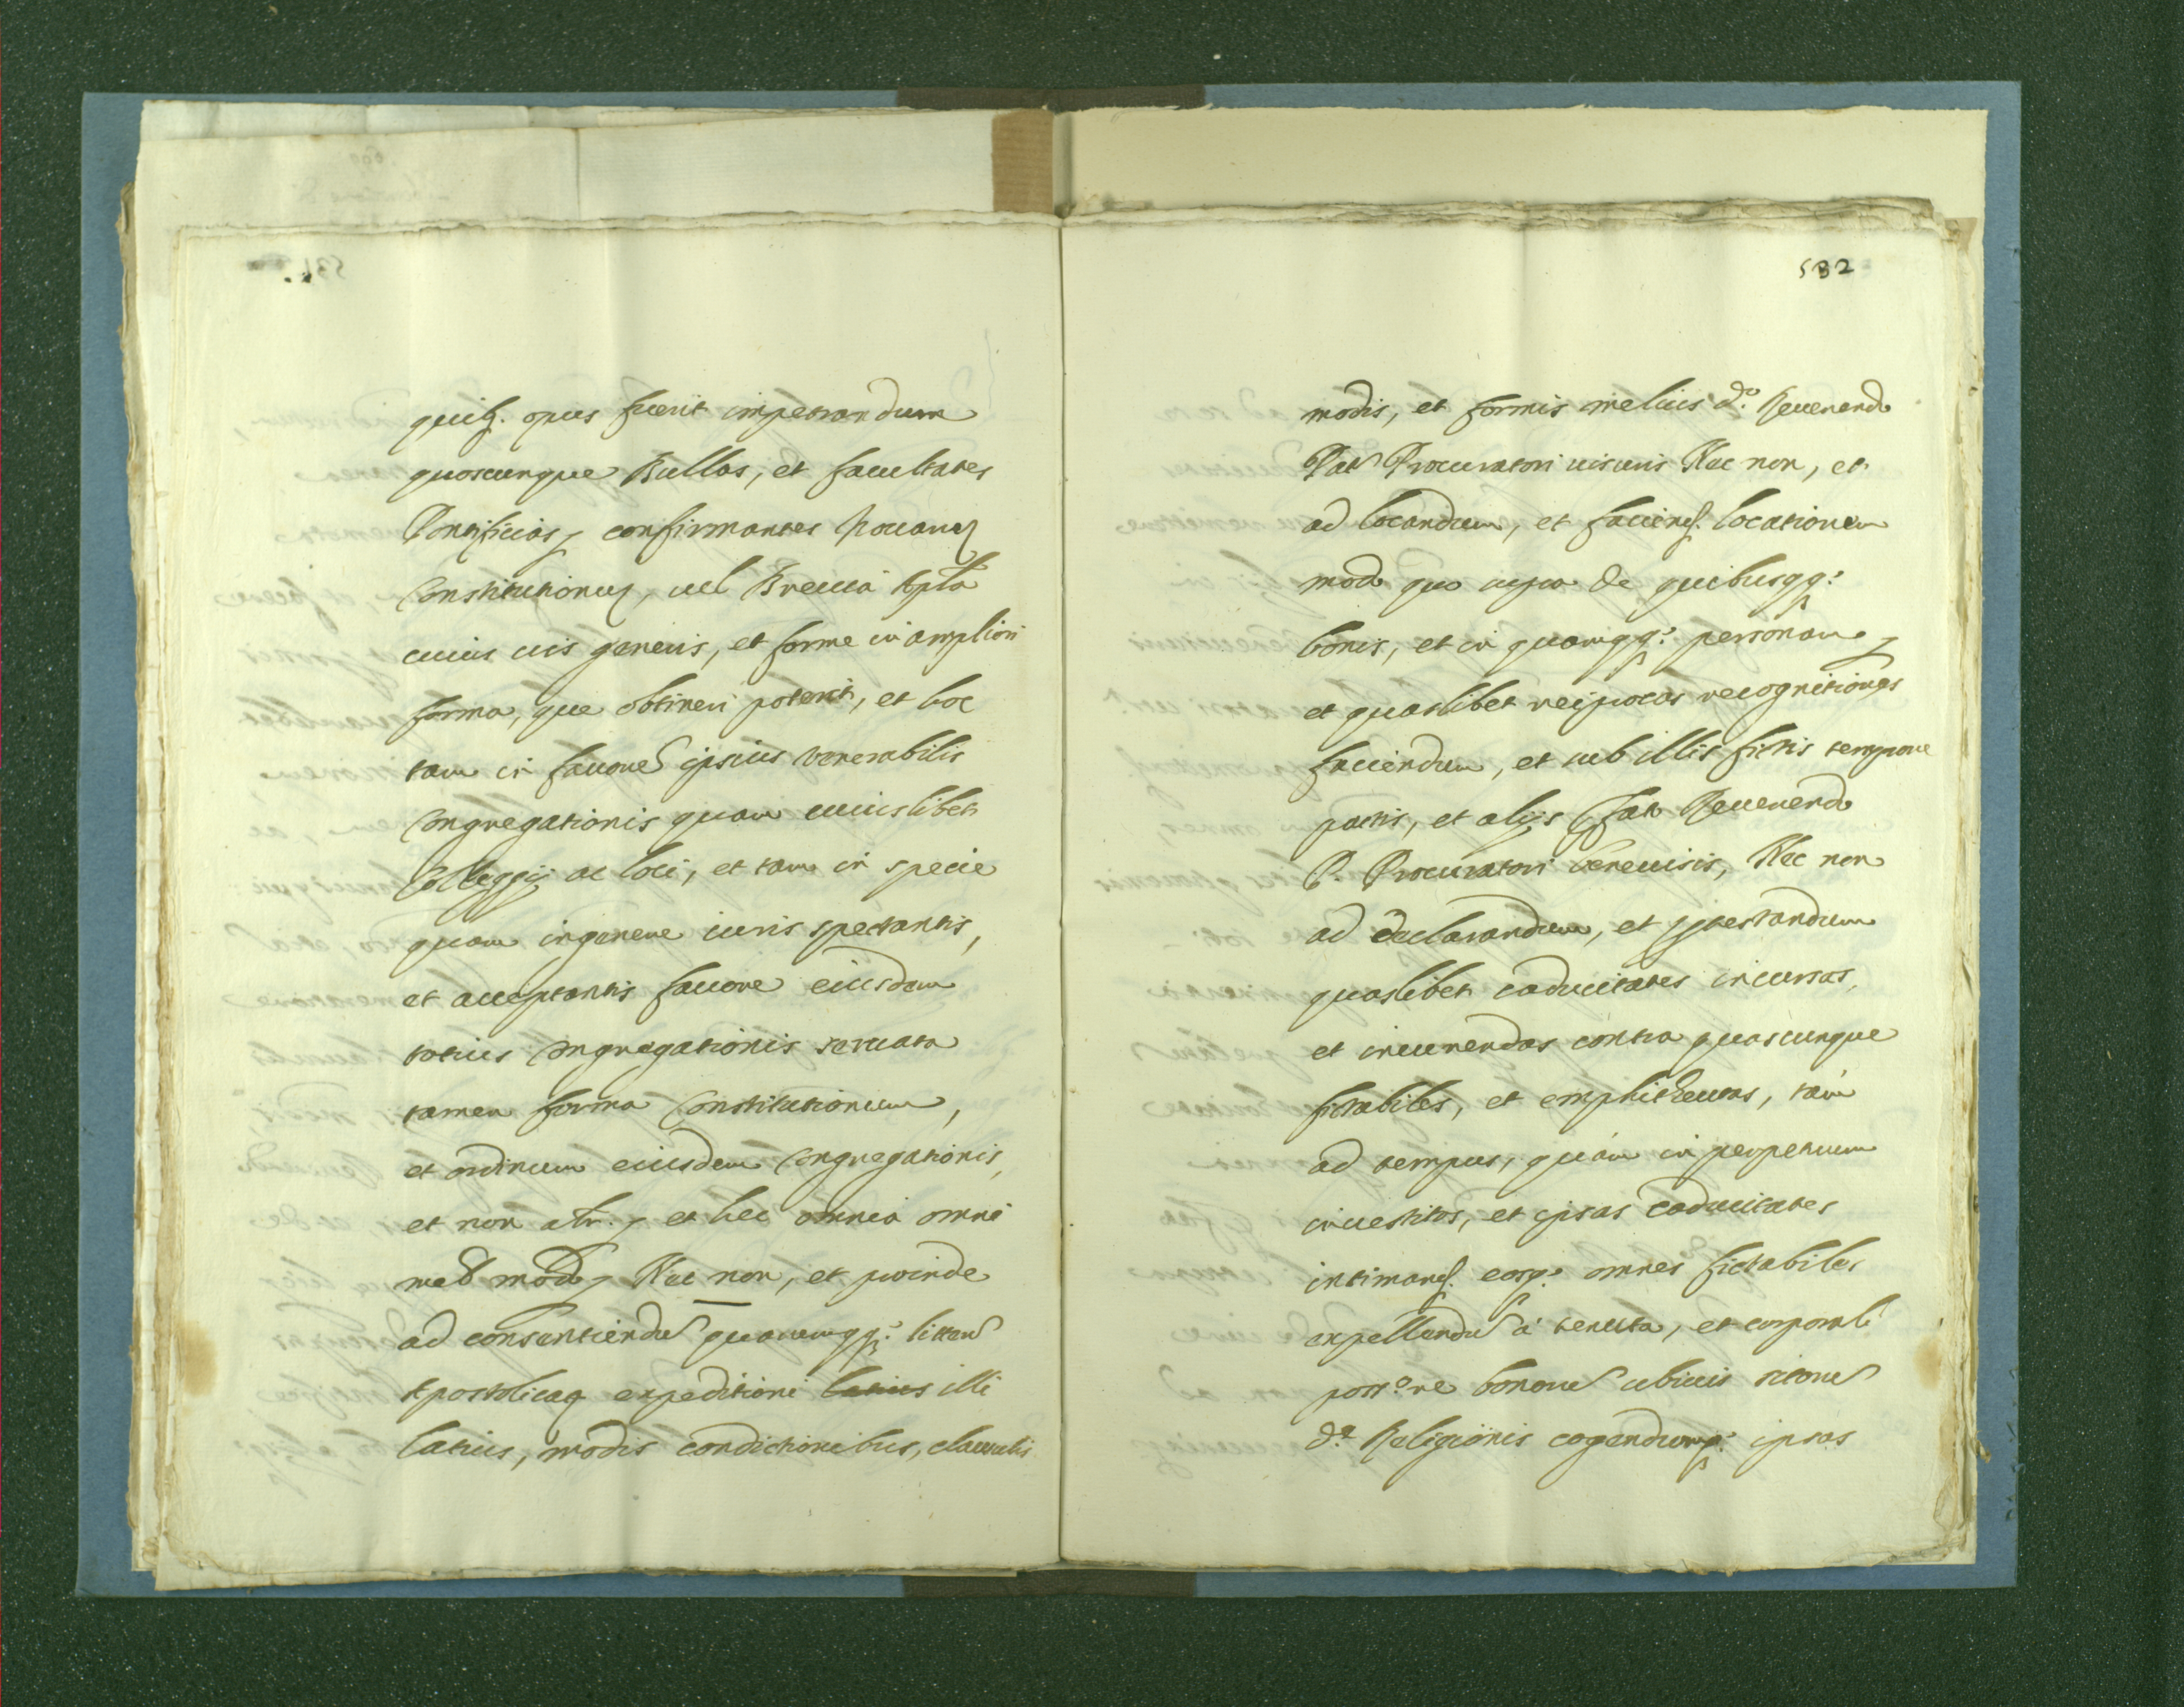 quibq. opus fuerit impetrandum
quoscunque Bullas, et facultates
Pontificias, confirmantes
Constitutionus, uel Breuia Aplca
cuius uis generis, et forme in ampliori
forma, que obtineri poterit, et hoc
tam in fauore ipsius Venerabilis
Congregationis quam cuiuslibet
Colleggij ac loci, et tam in specie
quam ingenere iuris spectantis,
et acceptantis fauore eiusdem
totius Congregationis seruata
tamen forma Constitutionum,
et ordinum eiusdem Congregationis,
et non alr. et hec omnia omni
mod Nec non, et proinde
ad consentiendu quarumqq: litteru
Apostolicaq expeditioni latius illi
latius, modis condictionibus, clausulis
532
modis, et formis melius d.o Reuerendo
Pat Procuratori uisuris Nec non, et
ad locandum, et faciend. locationem
modo quo supra de quibusqq:
bonis, et in quamqq: personam,
et quaslibet reciprocas recognitiones
faciendum, et sub illis fictis tempore
pactis, et alijs Reuerendo
P. Procuratori beneuisis, Nec non
ad declarandum, et ptestandum
quaslibet caducitates incursas,
et incurrendas contra quascunque
fictabiles, et emphitheutas, tam
ad tempus, quam in perpetuum
inuestitos, et ipsas caducitates
intimand. eosq: omnes fictabiles
expellendu à tenuta, et corporali
poss.ne bonoru ubiuis sitoru
d.e Religionis cogendumq: ipsos